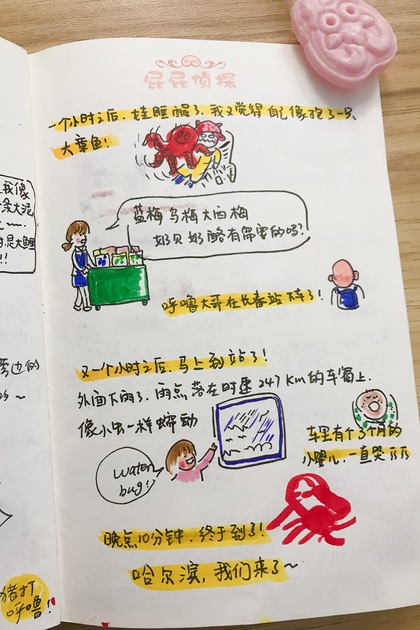 屁屁侦探
一个小时之后，娃睡醒了，我又觉得自己像抱了一只
大章鱼！
蓝莓乌梅大西梅
奶贝奶酪有需要的吗？
呼噜大哥在长春站下车了！
又一个小时之后，马上到站了！
外面下雨了，雨点落在时速247Km的车窗上，
像小虫一样蠕动
Water
bug！
车里有个3个月的
小婴儿，一直哭
晚点10分钟，终于到了！
哈尔滨，我们来了～
我像
一条大泥
是大鲤
旁边的
猪打
呼噜！